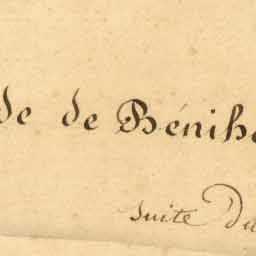 de de Bénih
suite du